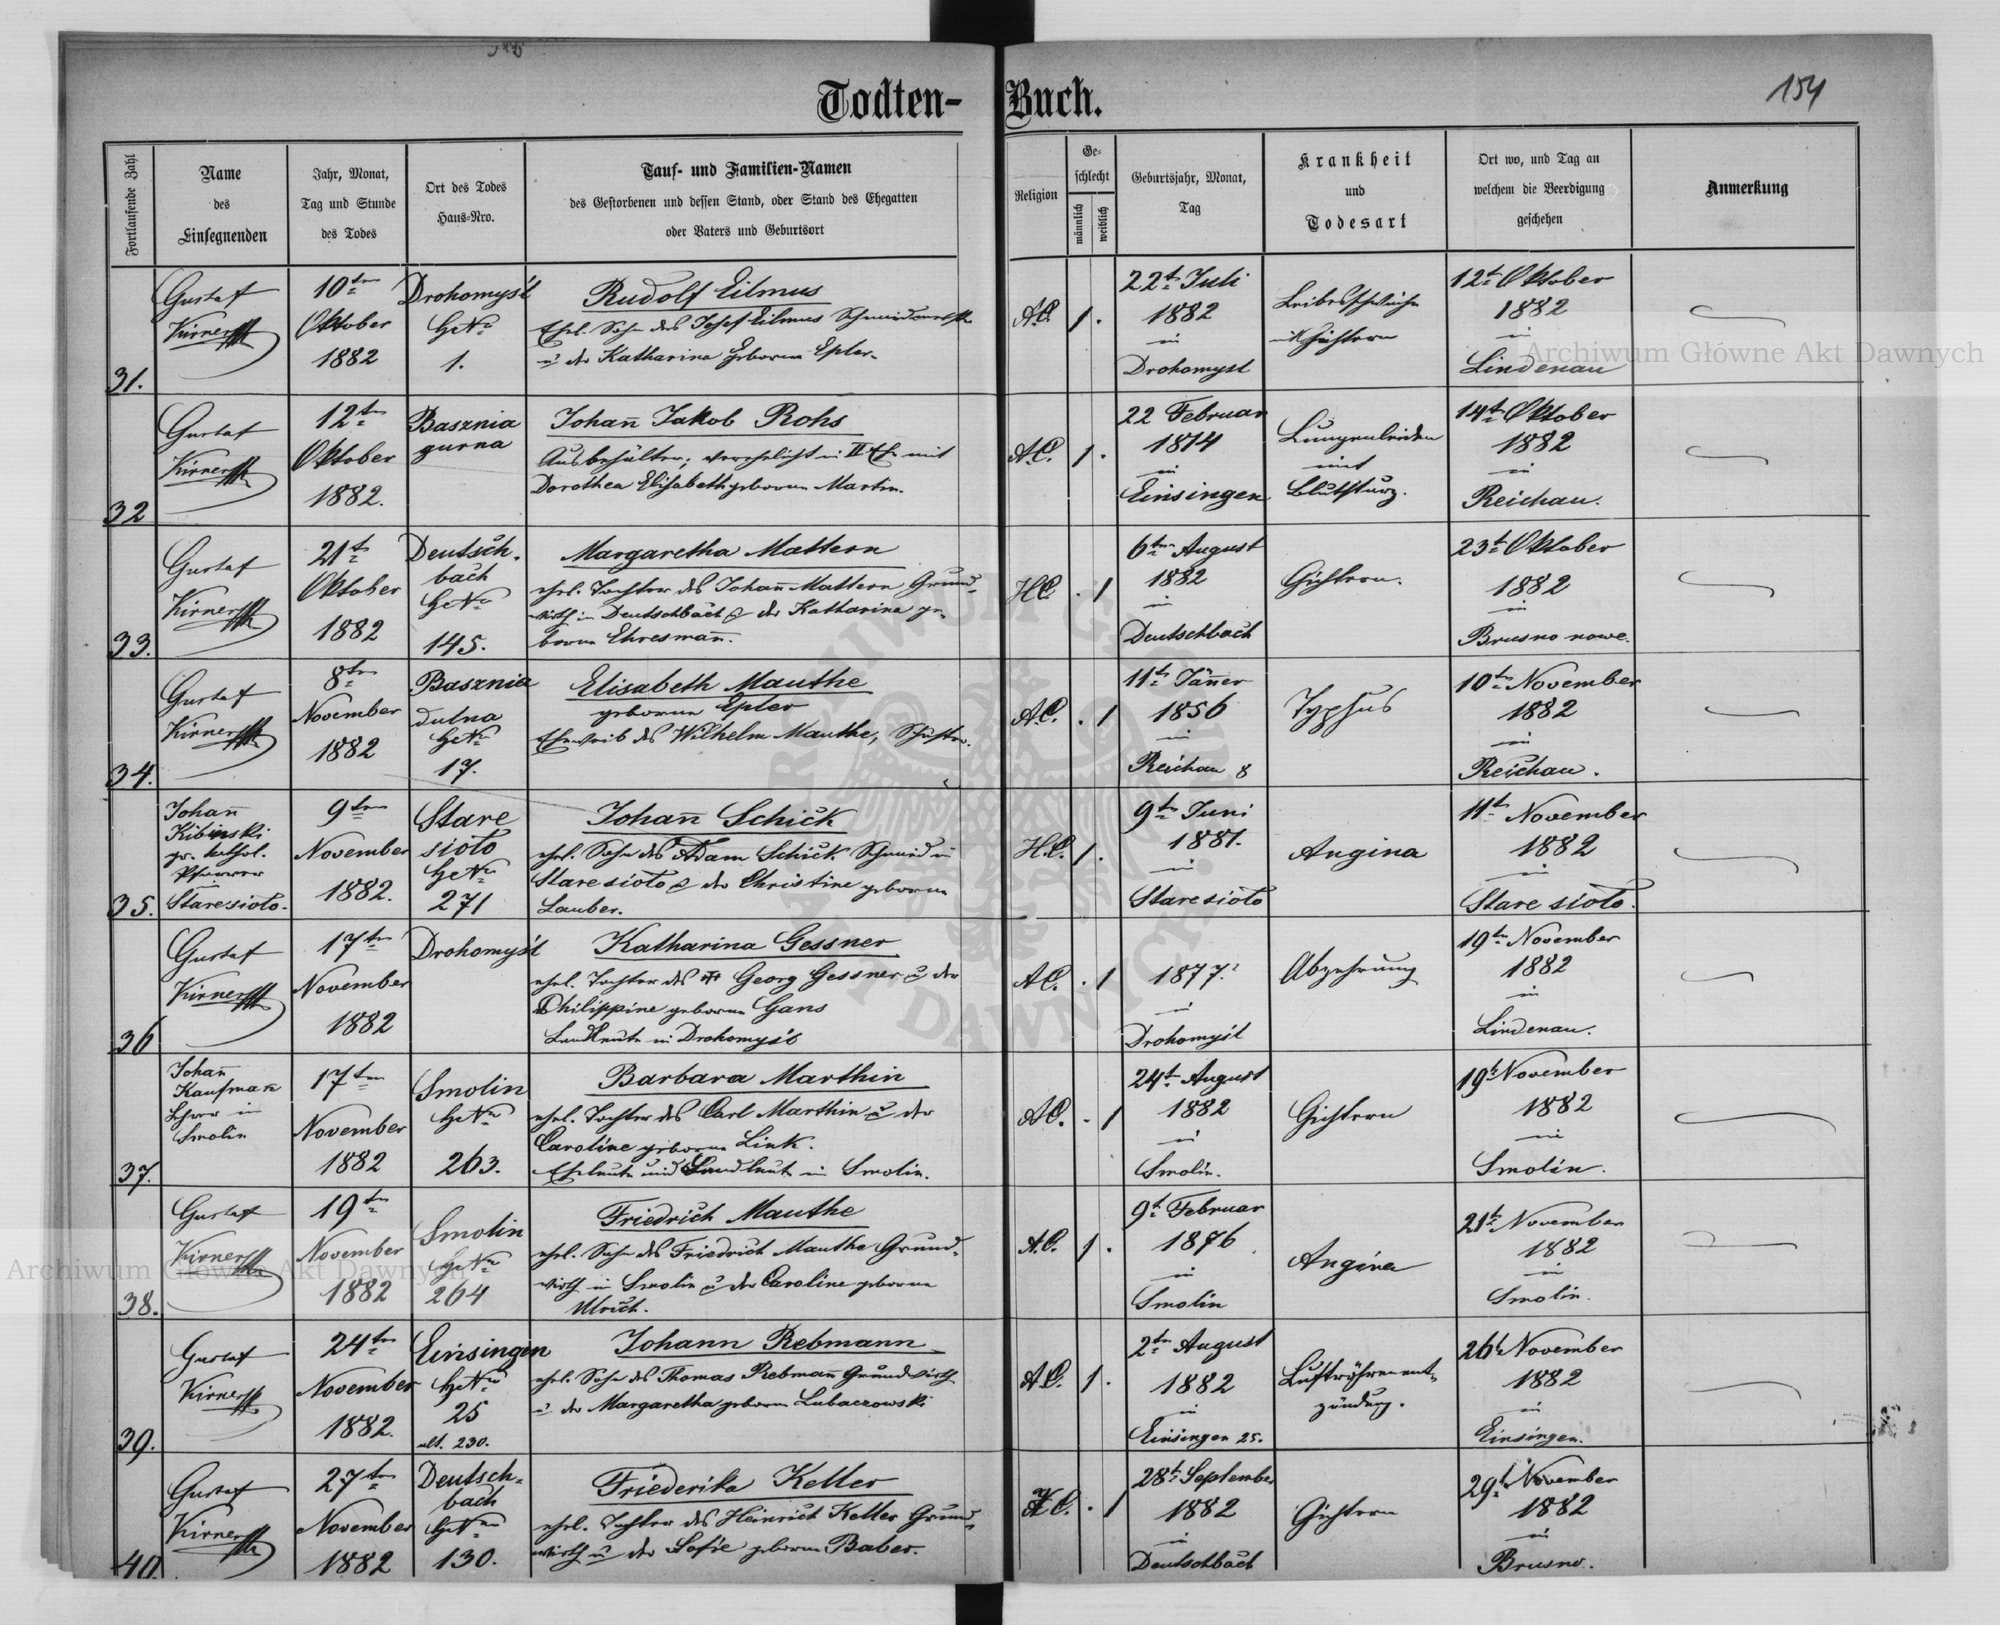 Todten-Buch.
154
Fortlaufende Zahl
Name
des
Einsegnenden
Jahr, Monat,
Tag und Stunde
des Todes
Ort des Todes
Haus-Nro.
Tauf- und Familien-Namen
des Gestorbenen und dessen Stand, oder Stand des Ehegatten
oder Vaters und Geburtsort
Religion
Ge-
schlecht
männlich
weiblich
Geburtsjahr, Monat,
Tag
Krankheit
und
Todesart
Ort wo, und Tag an
welchem die Beerdigung
geschehen
Anmerkung
31.
Gustaf
Kirner
10ten
Oktober
1882
Drohomyśl
HsNo
1.
Rudolf Eilmus
Ehel. Sohn des Josef Eilmus
u der Katharina geborene Epler.
A.C.
1 .
22t Juli
1882
in
Drohomysl
Leibesschwäche
mit Gichtern
12t Oktober
1882
in
Lindenau
32
Gustaf
Kirner
12ten
Oktober
1882.
Basznia
gurna
Johan̄ Jakob Rohs
Ausbehälter, verehelicht in II Ehe mit
Dorothea Elisabeth geborene Martin.
A.C.
1 .
22 Februar
1814
in
Einsingen
Lungenleiden
mit
Blutsturz.
14t Oktober
1882
in
Reichau.
33.
Gustaf
Kirner
21t
Oktober
1882
Deutsch-
bach
HsNo
145.
Margaretha Mattern
ehel. Tochter des Johan̄ Mattern Grund-
wirth in Deutschbach & der Katharina ge-
borene Ehresman̄.
H.C.
. 1
6ten August
1882
in
Deutschbach
Gichtern.
23t Oktober
1882
in
Brusno nowe.
34.
Gustaf
Kirner
8ten
November
1882
Basznia
dulna
HsNo
17.
Elisabeth Mauthe
geborene Epler
Eheweib des Wilhelm Mauthe, Schuster.
A.C.
. 1
11t Jän̄er
1856
in
Reichau 8
Typhus
10ten November
1882
in
Reichau.
35.
Johan̄
Kibinski
gr. kathol.
Pfarrer
in
Staresioto.
9ten
November
1882.
Stare
sioto
HsNo
271
Johan̄ Schick
ehel. Sohn des Adam Schick Schmied in
Staresioto & der Christine geborene
Lauber.
H.C.
1 .
9ten Juni
1881.
in
Staresioto
Angina
11t November
1882
in
Stare sioto.
36
Gustaf
Kirner
17ten
November
1882
Drohomyśl
Katharina Gessner
ehel. Tochter des Georg Gessner u der
Philippine geborene Gans
Landleute in Drohomyśl
A.C.
. 1
1877.
in
Drohomyśl
Abzehrung
19ten November
1882
in
Lindenau.
37.
Johan̄
Kaufman̄
Lehrer in
Smolin
17ten
November
1882
Smolin
HsNo
263.
Barbara Marthin
ehel. Tochter des Carl Marthin u der
Caroline geborene Link.
Eheleute und Landleute in Smolin.
A.C.
. 1
24t August
1882
in
Smolin.
Gichtern
19t November
1882
in
Smolin.
38.
Gustaf
Kirner
19ten
November
1882
Smolin
HsNo
264
Friedrich Mauthe
ehel. Sohn des Friedrich Mauthe Grund-
wirth in Smolin u der Caroline geborene
Ulrich.
A.C.
1 .
9t Februar
1876
in
Smolin
Angina
21t November
1882
in
Smolin.
39.
Gustaf
Kirner
24ten
November
1882.
Einsingen
HsNo
25
alt. 230.
Johann Rebmann
ehel. Sohn des Thomas Rebman̄ Grundwirth
u der Margaretha geborene Lubaczowski
A.C.
1 .
2ten August
1882
in
Einsingen 25.
Luftröhrenent-
zündung.
26t November
1882
in
Einsingen.
40.
Gustaf
Kirner
27ten
November
1882
Deutsch-
bach
HsNo
130.
Friederika Keller
ehel. Tochter des Heinrich Keller Grund-
wirth u der Sofie geborene Baber.
H.C.
. 1
28t September
1882
in
Deutschbach
Gichtern
29t November
1882
in
Brusno.
Archiwum Główne Akt Dawnych
Archiwum Główne Akt Dawnych
ARCHIWUM GŁÓWNE AKT DAWNYCH